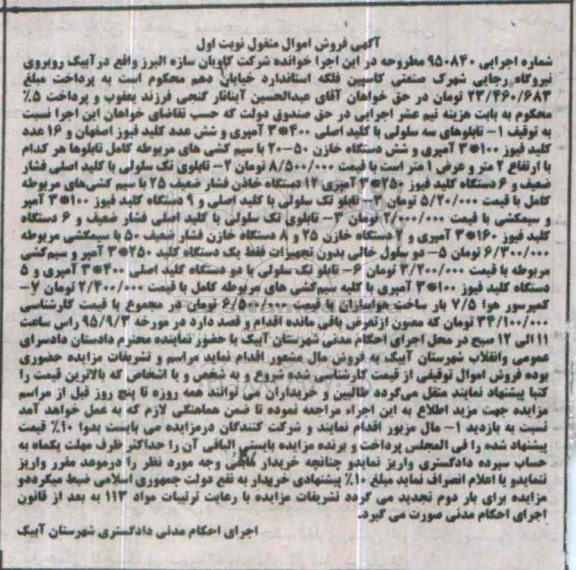 آگهی فروش اموال منقول نوبت اول
شماره اجرایی ۹۵۰۸۴۰ مطروحه در این اجرا خوانده شرکت کاویان سازه البرز واقع در آبیک روبروی
نیروگاه رجایی شهرک صنعتی کاسپین فلکه استاندارد خیابان دهم محکوم است به پرداخت مبلغ
۲۳/۴۶۰/۶۸۳ تومان در حق خواهان آقای عبدالحسین آیناثار گنجی فرزند یعقوب و پرداخت ۵٪
محکوم به بابت هزینه نیم عشر اجرایی در حق صندوق دولت که حسب تقاضای خواهان این اجرا نسبت
به توقیف ۱- تابلوهای سه سلولی با کلید اصلی ۴۰۰*۳ آمپری و شش عدد کلید فیوز اصفهان و ۱۶ عدد
کلید فیوز ۱۰۰*۳ آمپری و شش دستگاه خازن ۵۰-۲۰ با سیم کشی های مربوطه کامل تابلوها هر کدام
با ارتفاع ۲ متر و عرض ۱ متر است با قیمت ۸/۵۰۰/۰۰۰ تومان ۲- تابلوی تک سلولی با کلید اصلی فشار
ضعیف و ۶ دستگاه کلید فیوز ۲۵۰*۳ آمپری ۱۲ دستگاه خازن فشار ضعیف ۲۵ با سیم کشی‌های مربوطه
کامل با قیمت ۵/۲۰۰/۰۰۰ تومان ۳- تابلو تک سلولی با کلید اصلی و ۹ دستگاه کلید فیوز ۱۰۰*۳ آمپر
و سیمکشی با قیمت ۲/۰۰۰/۰۰۰ تومان ۴- تابلوی تک سلولی با کلید اصلی فشار ضعیف و ۶ دستگاه
کلید فیوز ۱۶۰*۳ آمپری و ۲ دستگاه خازن ۲۵ و ۸ دستگاه خازن فشار ضعیف ۵۰ با سیمکشی مربوطه
۶/۳۰۰/۰۰۰ تومان ۵- دو سلول خالی بدون تجهیزات فقط یک دستگاه کلید ۲۵۰*۳ آمپر و سیم‌کشی
مربوطه با قیمت ۳/۲۰۰/۰۰۰ تومان ۶- تابلو تک سلولی با دو دستگاه کلید اصلی ۴۰۰*۳ آمپری و ۵
دستگاه کلید فیوز ۱۰۰*۳ آمپری با کلیه سیم‌کشی های مربوطه کامل با قیمت ۲/۴۰۰/۰۰۰ تومان ۷-
کمپرسور هوا ۷/۵ بار ساخت هواسازان با قیمت ۶/۵۰۰/۰۰۰ تومان در مجموع با قیمت کارشناسی
۳۴/۱۰۰/۰۰۰ تومان که مصون ازتعرض باقی مانده اقدام و قصد دارد در مورخه ۹۵/۹/۳ راس ساعت
۱۱ الی ۱۲ صبح در محل اجرای احکام مدنی شهرستان آبیک با حضور نماینده محترم دادستان دادسرای
عمومی وانقلاب شهرستان آبیک به فروش مال مشعور اقدام نماید مراسم و تشریفات مزایده حضوری
بوده فروش اموال توقیفی از قیمت کارشناسی شده شروع و به شخص و یا اشخاص که بالاترین قیمت را
کتبا پیشنهاد نمایند منتقل می‌گردد طالبین و خریداران می توانند همه روزه تا پنج روز قبل از مراسم
مزایده جهت مزید اطلاع به این اجراء مراجعه نموده تا ضمن هماهنگی لازم که به عمل خواهد آمد
نسبت به بازدید ۱- مال مزبور اقدام نمایند و شرکت کنندگان درمزایده می بایست بدوا ۱۰٪ قیمت
پیشنهاد شده را فی المجلس پرداخت و برنده مزایده بایستی الباقی آن را حداکثر ظرف مهلت یکماه به
حساب سپرده دادگستری واریز نمایدو چنانچه خریدار مابقی وجه مورد نظر را درموعد مقرر واریز
ننمایدو یا اعلام انصراف نماید مبلغ ۱۰٪ پیشنهادی خریدار به نفع دولت جمهوری اسلامی ضبط میگرددو
مزایده برای بار دوم تجدید می گردد تشریفات مزایده با رعایت ترتیبات مواد ۱۱۳ به بعد از قانون
اجرای احکام مدنی صورت می گیرد.
اجرای احکام مدنی دادگستری شهرستان آبیک